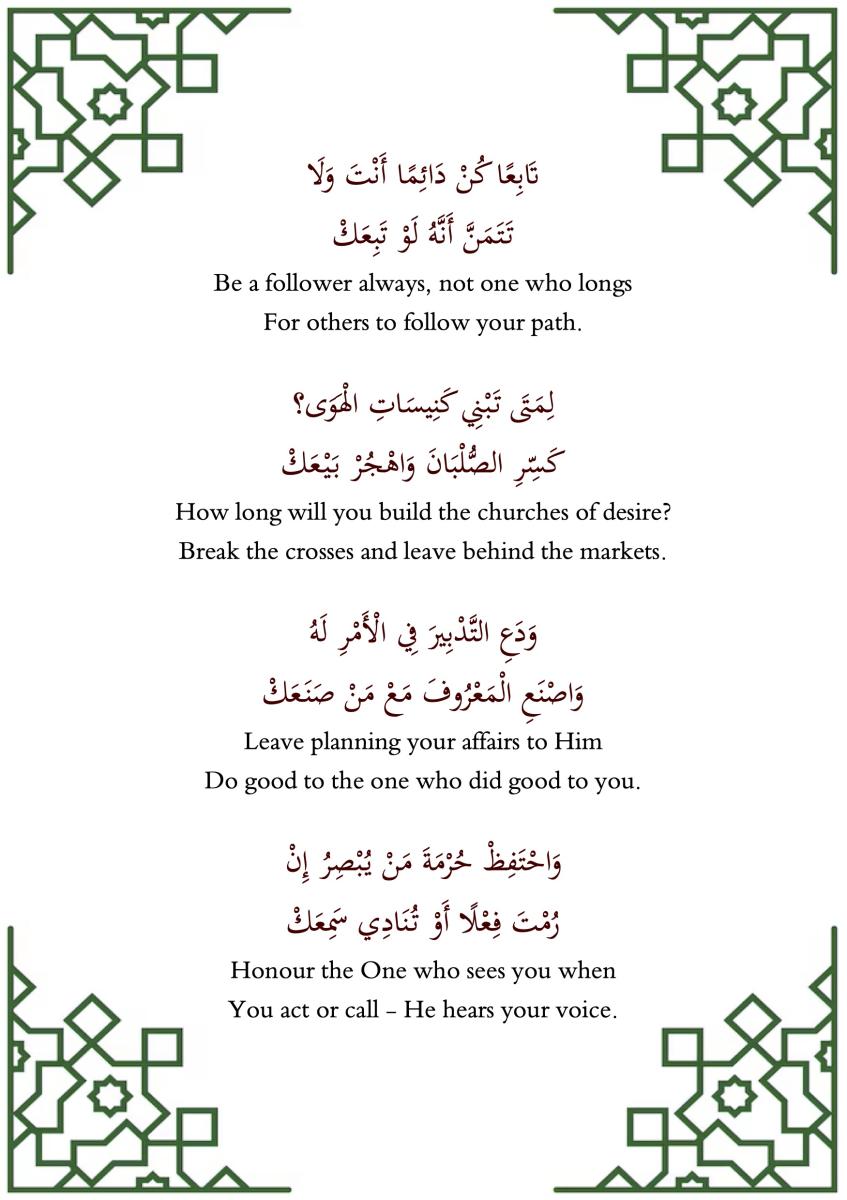 تَابِعًا كُنْ دَائِمًا أَنْتَ وَلَا
تَتَمَنَّ أَنَّهُ لَوْ تَبِعَكْ
Be a follower always, not one who longs
For others to follow your path.
لِمَتَى تَبْنِي كَنِيسَاتِ الْهَوَى؟
كَسِّرِ الصُّلْبَانَ وَاهْجُرْ بَيْعَكْ
How long will you build the churches of desire?
Break the crosses and leave behind the markets.
وَدَعِ التَّدْبِيرَ فِي الْأَمْرِ لَهُ
وَاصْنَعِ الْمَعْرُوفَ مَعْ مَنْ صَنَعَكْ
Leave planning your affairs to Him
Do good to the one who did good to you.
وَاحْتَفِظْ حُرْمَةَ مَنْ يُبْصِرُ إِنْ
رُمْتَ فِعْلًا أَوْ تُنَادِي سَمِعَكْ
Honour the One who sees you when
You act or call – He hears your voice.